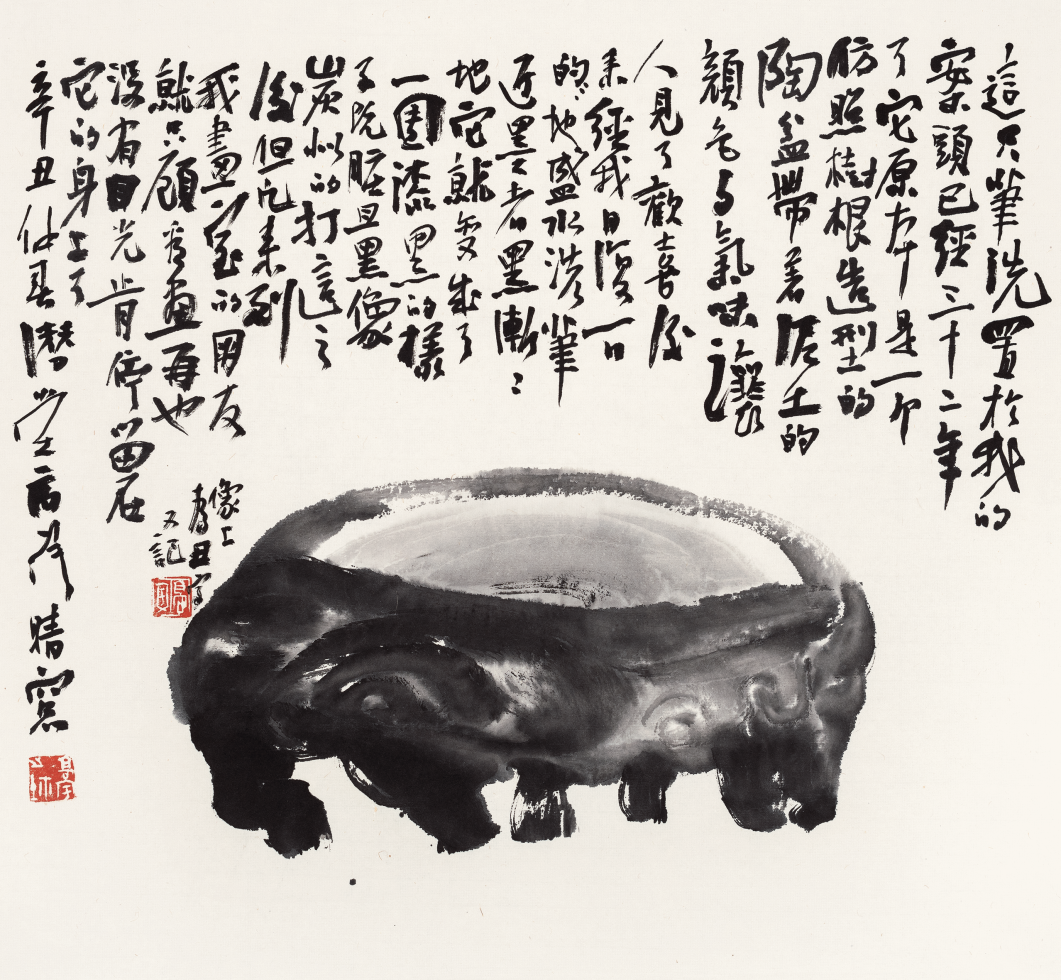 這只筆洗置於我的
案頭已經三十二年
了它原本是一个
仿照樹根造型的
陶盆帶着泥土的
顏色与氣味讓
人見了歡喜後
來經我日復一日
的地盛水洗筆
近墨者黑漸漸
地它就变成了
一團漆黑的樣
子既脏且黑像
炭似的打這之
後但凡來到
我畫室的朋友
就只顧看畫再也
沒有目光肯停留在
它的身上了
辛丑仲春潛堂晴窗
像上
又記